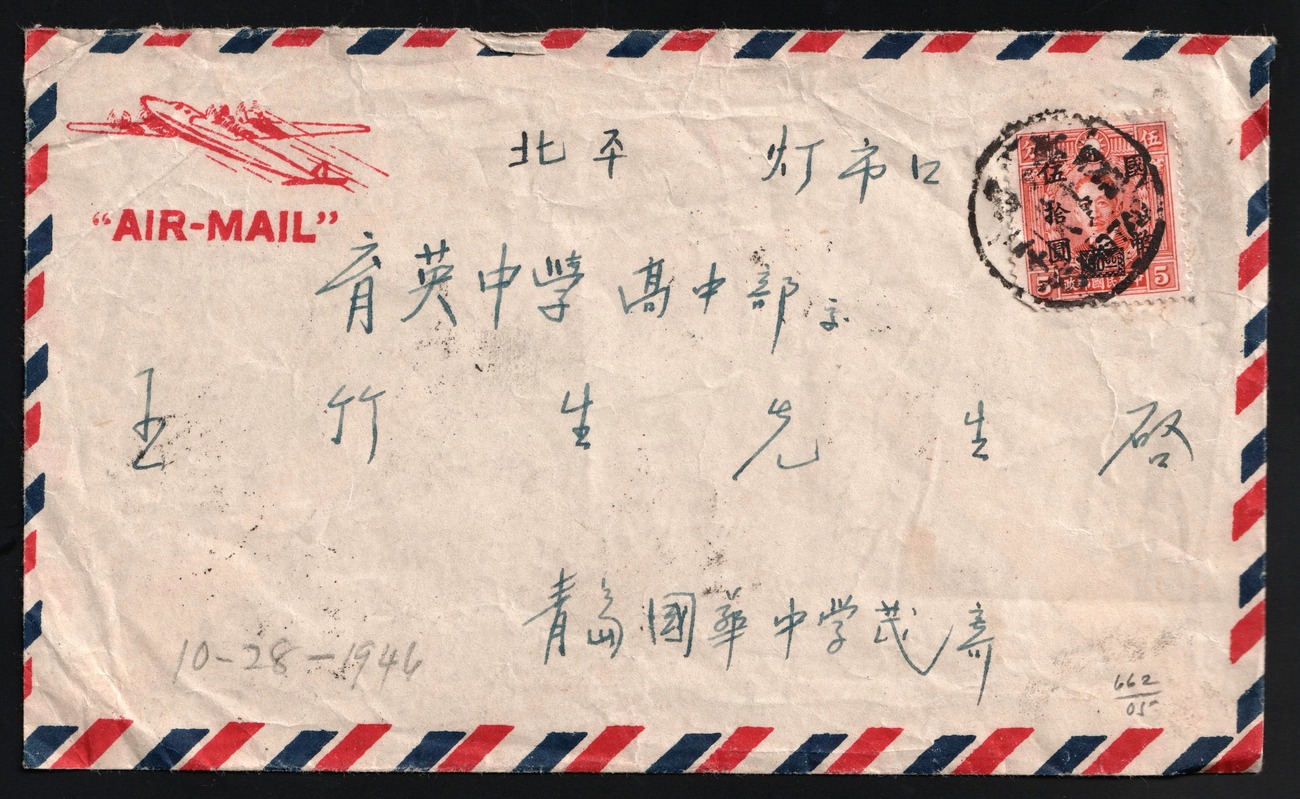 "AIR-MAIL"
北平 灯市口
育英中學高中部交
王竹生先生啓
青島國華中学茂斋
10-28-1946
662
05
國幣
伍拾圓
5 5